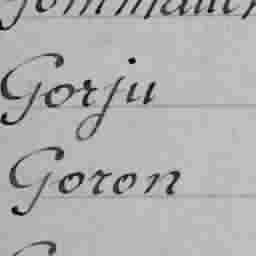 Gorju
Goron